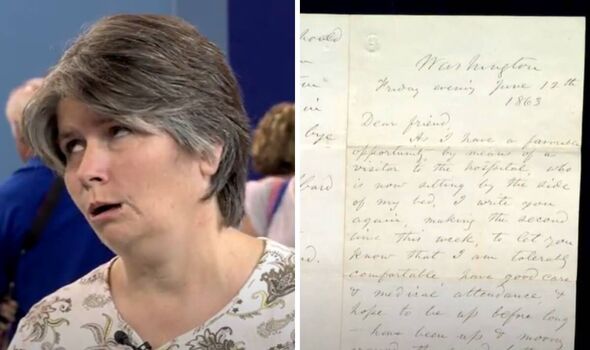 hoold
in
bye
bard
d.
Washington
Friday evening June 12th
1863
Dear friend,
As I have a favorable
opportunity by means of a
visitor to the hospital, who
is now sitting by the side
of my bed, I write you
again, making the second
time this week, to let you
know that I am tolerably
comfortable, have good care
& medical attendance, &
hope to be up before long
– have been up & moving